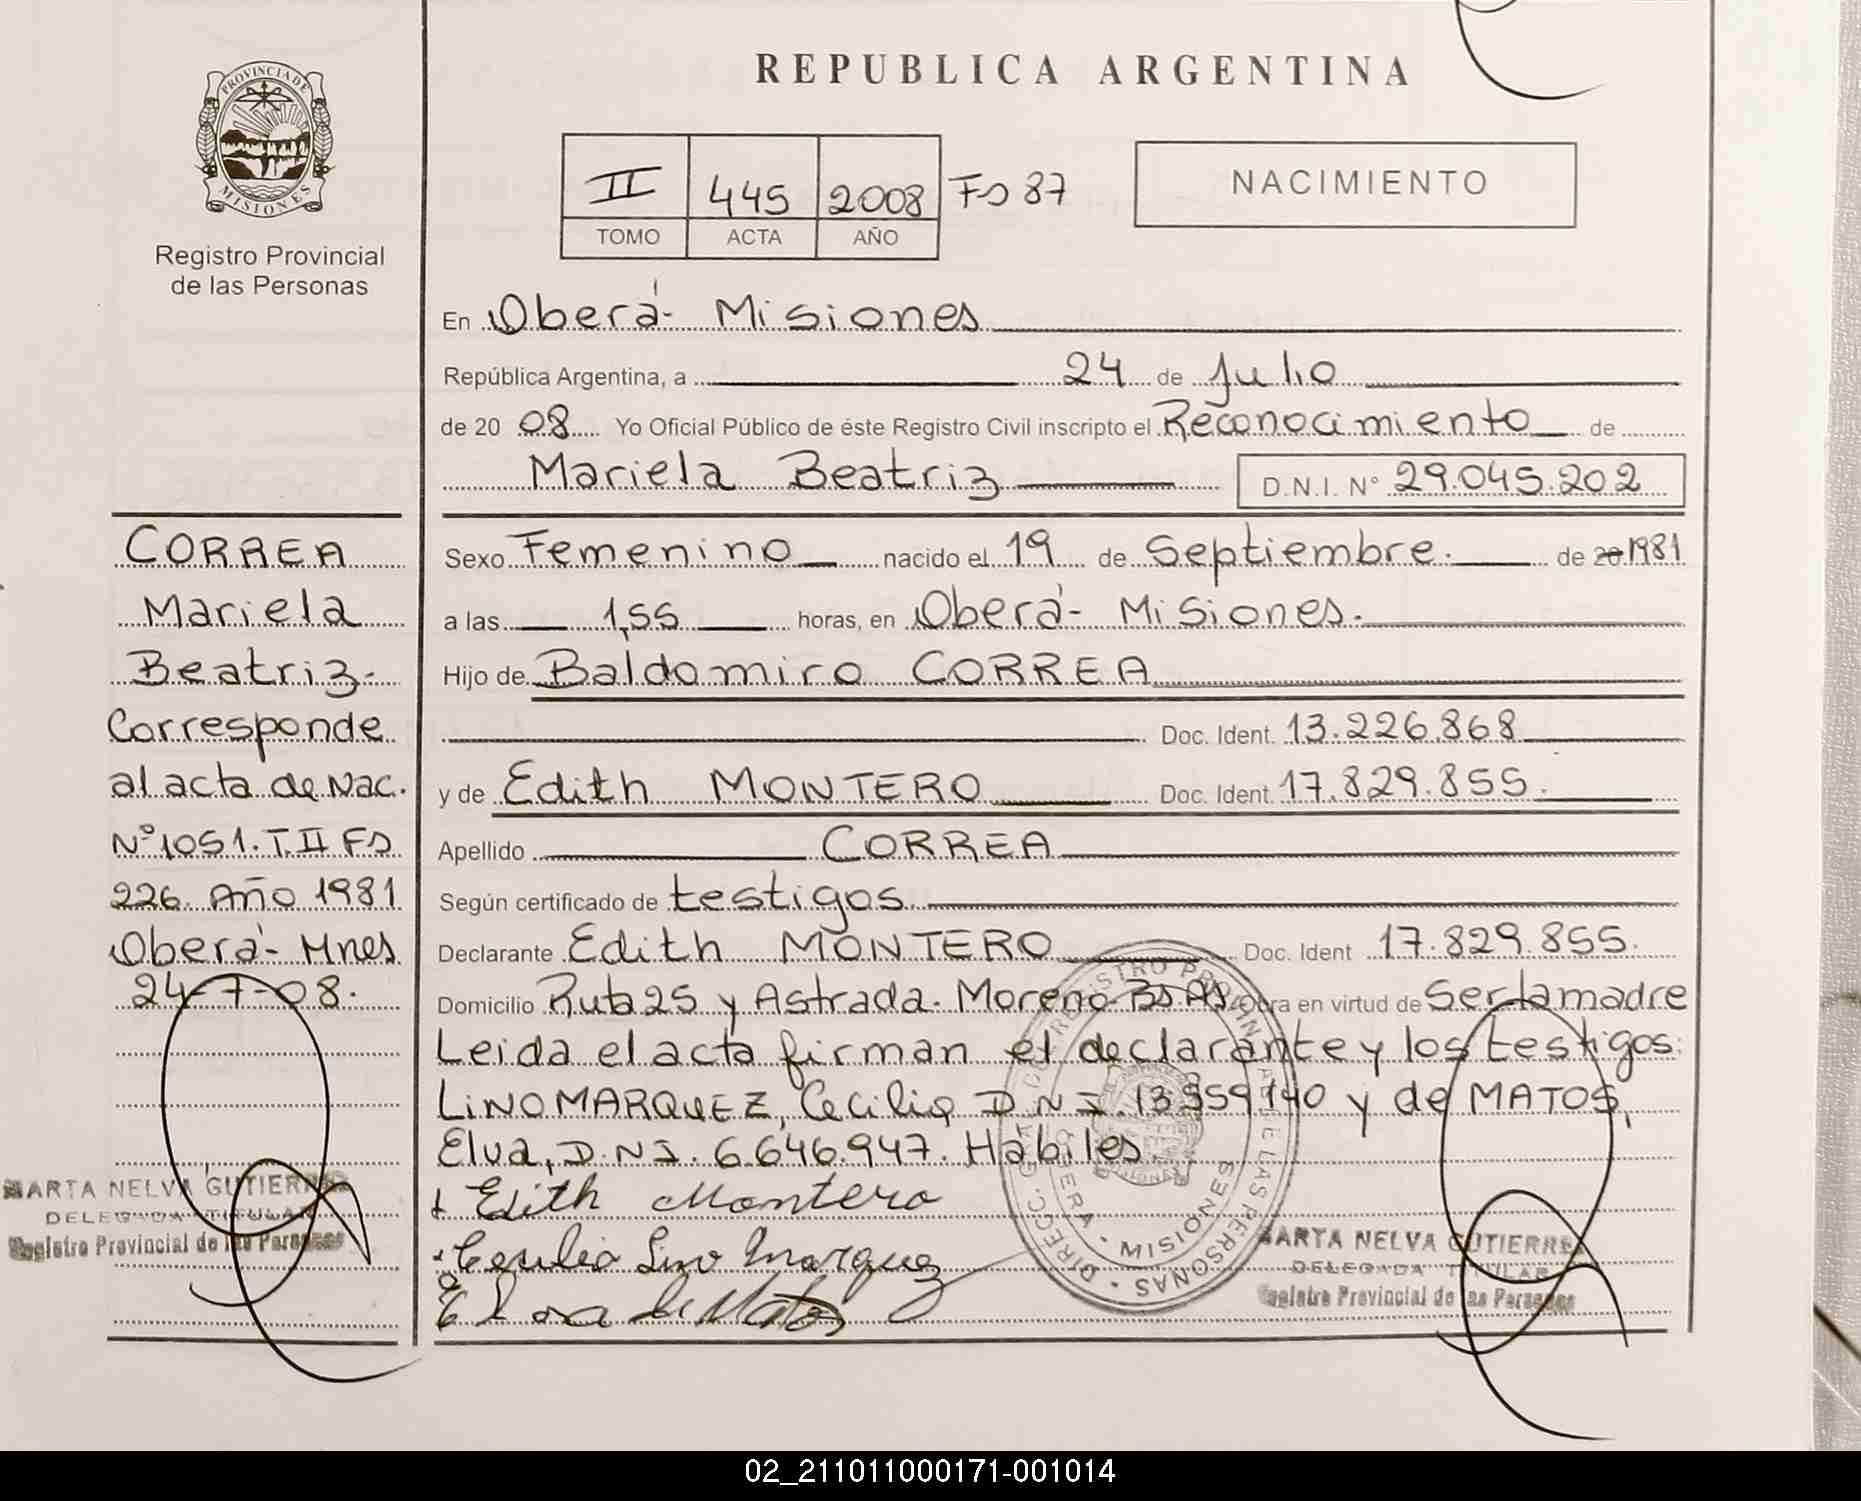 REPUBLICA ARGENTINA
PROVINCIA DE MISIONES
Registro Provincial
de las Personas
II 445 2008 Fs 87
TOMO ACTA AÑO
NACIMIENTO
En Oberá- Misiones
República Argentina, a 24 de Julio
de 20 08 Yo Oficial Público de éste Registro Civil inscripto el Reconocimiento de
Mariela Beatriz D.N.I. N° 29.045.202
Sexo Femenino nacido el 19 de Septiembre. de 20 1981
a las 1,55 horas, en Oberá- Misiones.
Hijo de Baldomiro CORREA
Doc. Ident. 13.226.868
y de Edith MONTERO Doc. Ident. 17.829.855.
Apellido CORREA
Según certificado de testigos.
Declarante Edith MONTERO Doc. Ident 17.829.855.
Domicilio Ruta 25 y Astrada. Moreno-Bs.As. Obra en virtud de Ser la madre
Leida el acta firman el declarante y los testigos:
LINO MARQUEZ, Cecilia D.N.I. 13.359140 y de MATOS,
Elva, D.N.I. 6.646.947. Habiles.
Edith Montero
Cecilia Lino Marquez
Elva de Matos
CORREA
Mariela
Beatriz-
Corresponde
al acta de Nac.
N° 1051. T. II Fs
226. Año 1981
Oberá- Mnes
24-7-08.
MARTA NELVA GUTIERREZ
DELEGADA TITULAR
Registro Provincial de las Personas
MARTA NELVA GUTIERREZ
DELEGADA TITULAR
Registro Provincial de las Personas
MISIONES
02_211011000171-001014